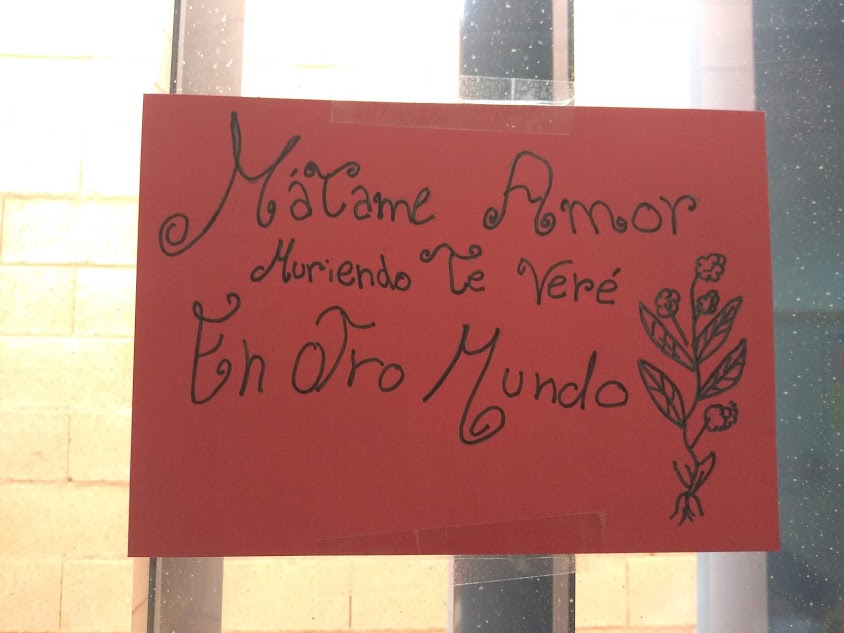 Mátame Amor
Muriendo Te Veré
En Otro Mundo